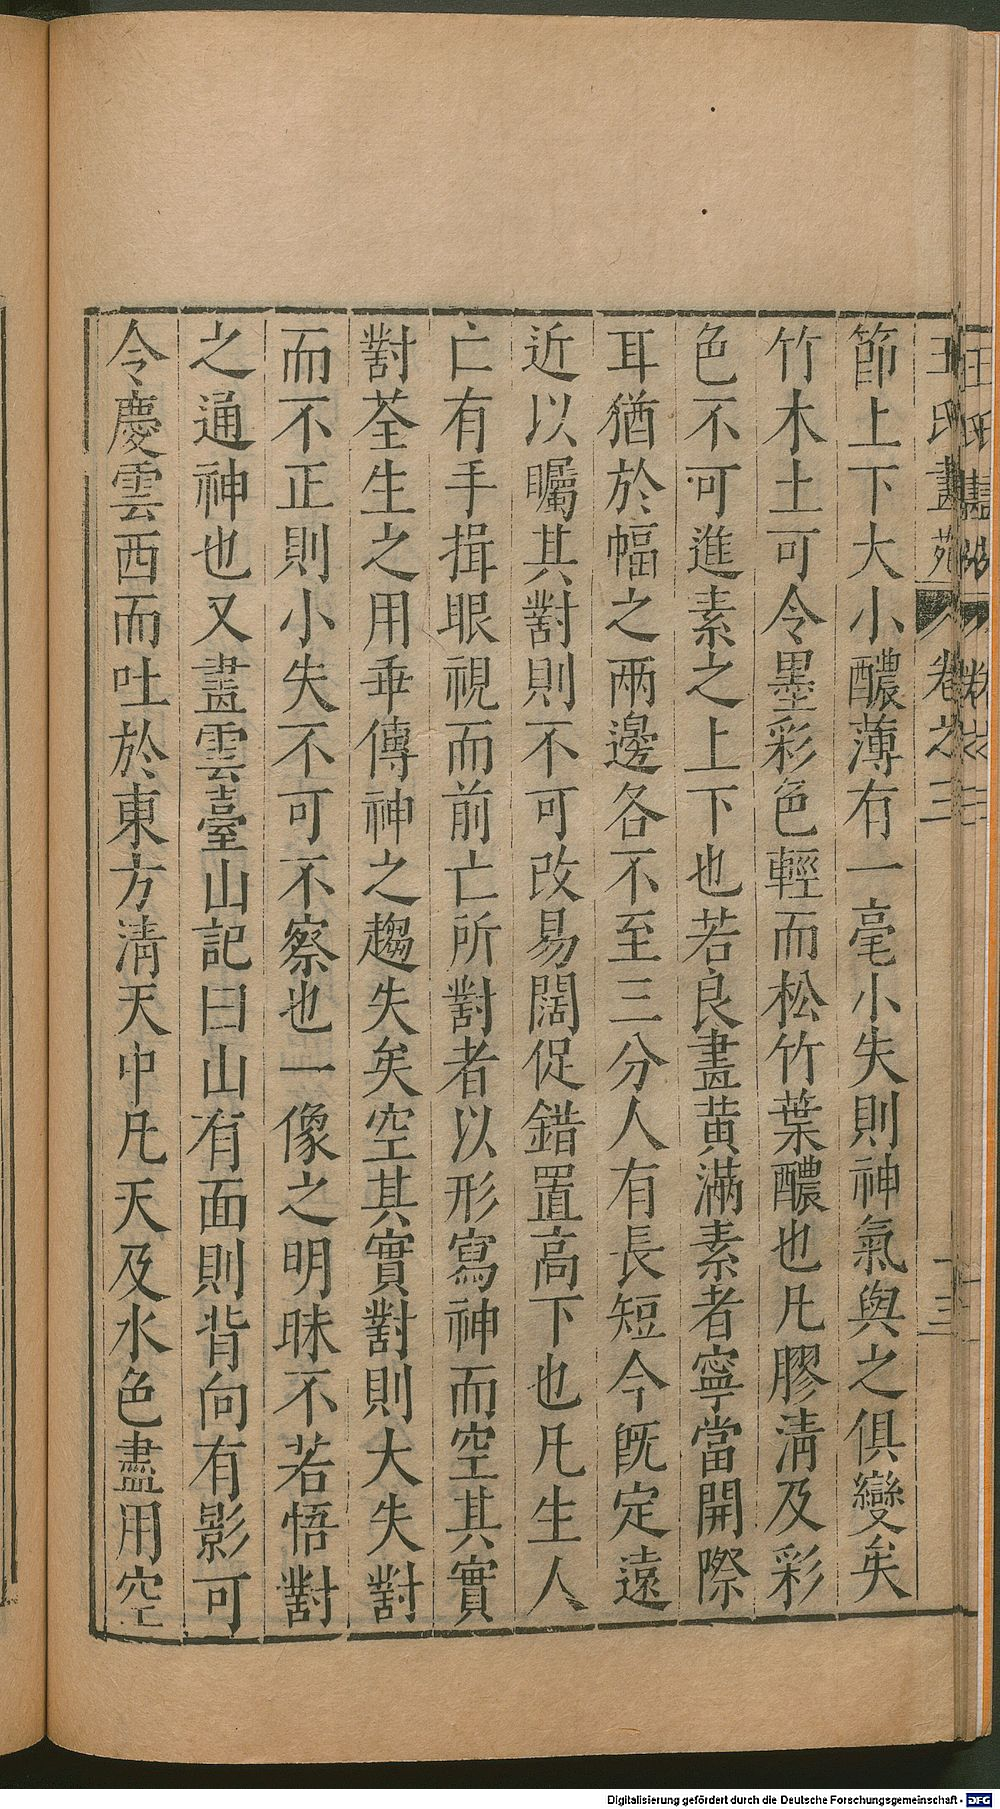 王氏畫苑 卷之三 十三
節上下大小醲薄有一毫小失則神氣與之俱變矣
竹木土可令墨彩色輕而松竹葉醲也凡膠淸及彩
色不可進素之上下也若良畫黃滿素者寧當開際
耳猶於幅之兩邊各不至三分人有長短今旣定遠
近以矚其對則不可改易闊促錯置高下也凡生人
亡有手揖眼視而前亡所對者以形寫神而空其實
對荃生之用乖傳神之趨失矣空其實對則大失對
而不正則小失不可不察也一像之明昧不若悟對
之通神也又畫雲臺山記曰山有面則背向有影可
令慶雲西而吐於東方淸天中凡天及水色盡用空
Digitalisierung gefördert durch die Deutsche Forschungsgemeinschaft - DFG